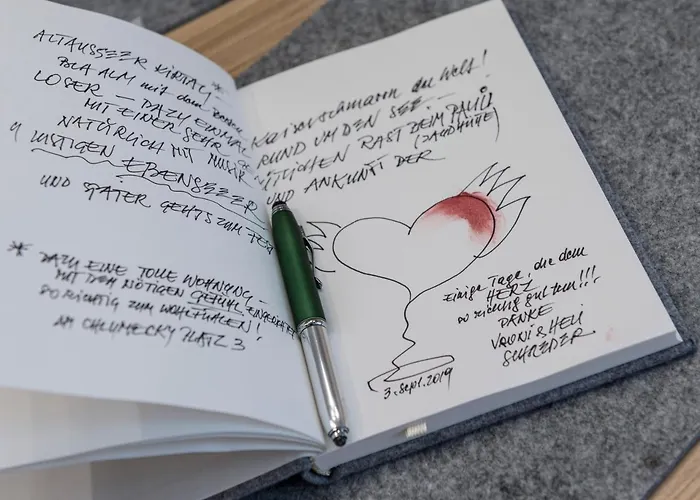 ALTAUSSEER KIRTAG*
BLA ALM mit dem
LOSER – DAZY EINMAL
MIT EINER SEHR
NATÜRLICH MIT MUSIK
LUSTIGEN EBENSEEER
UND SPÄTER GEHTS ZUM FEST
* DAZU EINE TOLLE WOHNUNG –
MIT DEM NÖTIGEN GEFÜHL
SO RICHTIG ZUM WOHLFÜHLEN!
AM CHLUMECKY PLATZ 3
Kaiserschmarrn der Welt!
RUND UM DEN SEE –
RAST BEIM PAULI
(JAGDHÜTTE)
UND ANKUNFT DER
Einige Tage, die dem
HERZ
so richtig gut tun!!!
DANKE
VRONI & HELI
SCHREDER
3. Sept. 2019